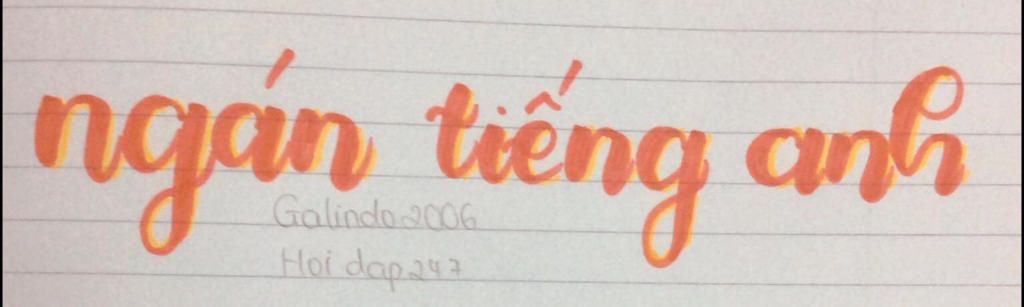 ngán tiếng anh
Galindo2006
Hoi dap247